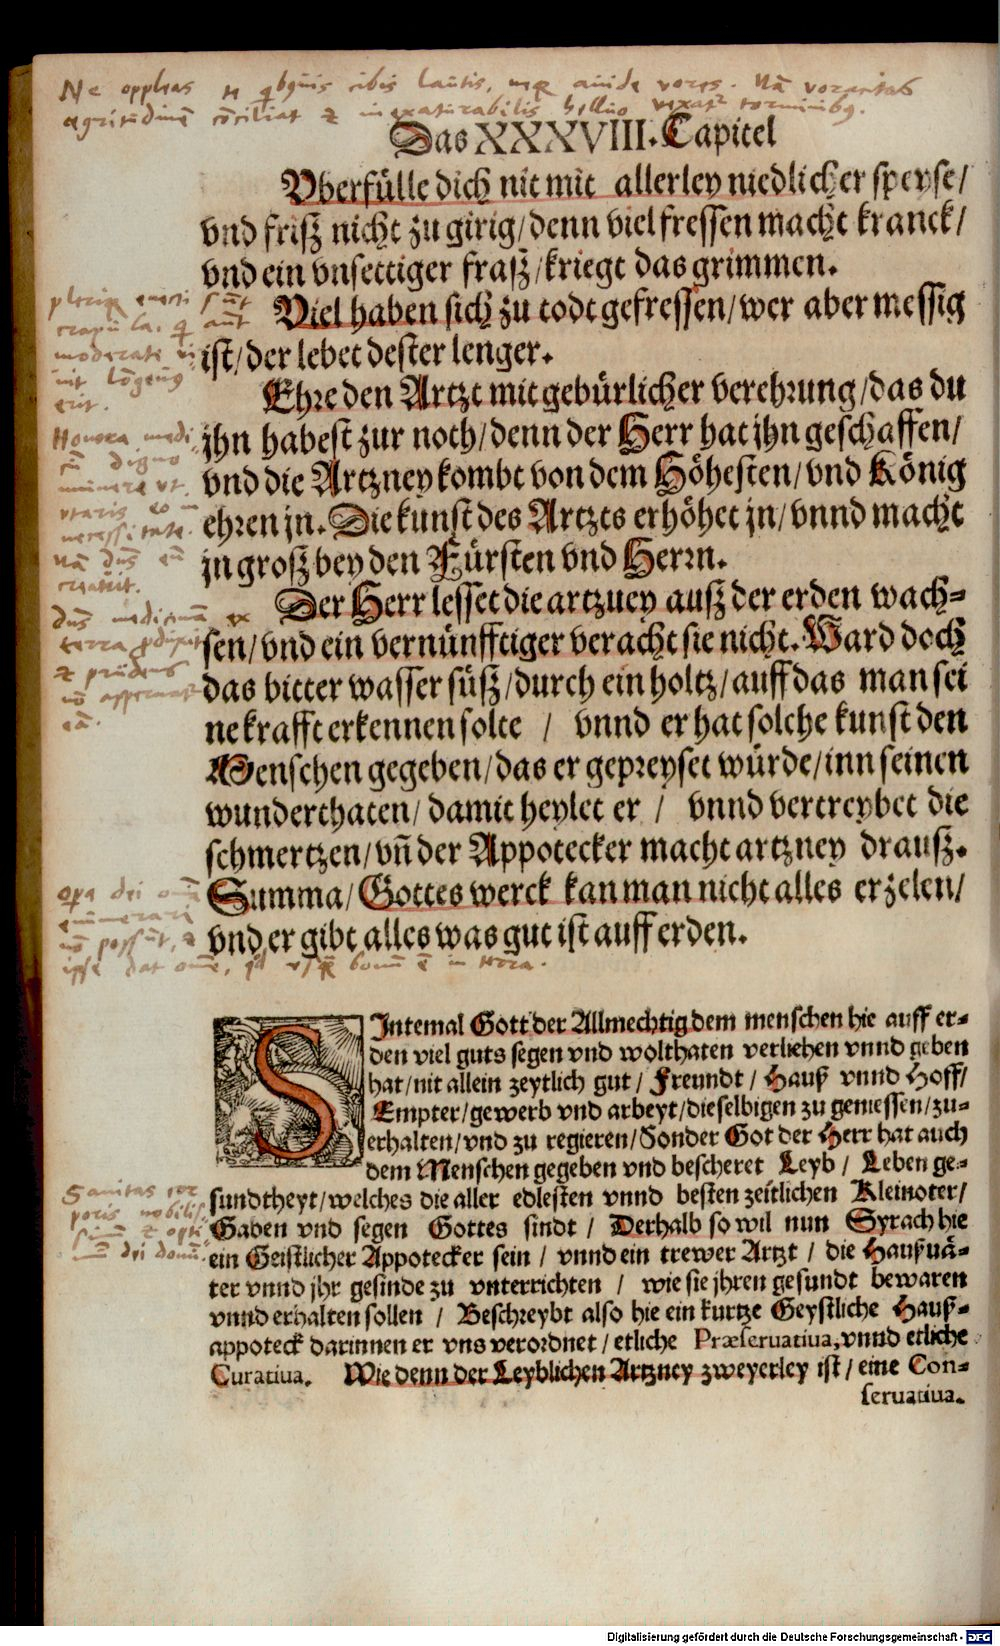 Ne oppleas cibis lautis, avide vores. Nā voracitas
egritudinē cōciliat & inexaturabilis helluo vexat² torminibꝯ.
Das XXXVIII. Capitel
Vberfülle dich nit mit allerley niedlicher speyse/
vnd friß nicht zu girig/denn viel fressen macht kranck/
vnd ein vnsettiger fraß/kriegt das grimmen.
Viel haben sich zu todt gefressen/wer aber messig
ist/der lebet dester lenger.
crapula.
moderate vi
uit lōgeuꝯ
erit.
Ehre den Artzt mit gebürlicher verehrung/das du
jhn habest zur noth/denn der Herr hat jhn geschaffen/
vnd die Artzney kombt von dem Höhesten/vnd König
ehren jn. Die kunst des Artzts erhöhet jn/vnnd macht
jn groß bey den Fürsten vnd Herrn.
Honora medi
cū digno
munere vt
vtaris eo in
necessitate.
Nā dn̄s eū
creauit.
Der Herr lesset die artzney auß der erden wach-
sen/vnd ein vernünfftiger veracht sie nicht. Ward doch
das bitter wasser süß/durch ein holtz/auff das man sei
ne krafft erkennen solte / vnnd er hat solche kunst den
Menschen gegeben/das er gepreyset würde/inn seinen
wunderthaten/damit heylet er / vnnd vertreybet die
schmertzen/vn̄ der Appotecker macht artzney drauß.
Summa/Gottes werck kan man nicht alles erzelen/
vnd er gibt alles was gut ist auff erden.
Dn̄s medicinā ex
terra
& prudens
nō aspernat²
eā.
opa dei omīa
enumerari
nō possūt, &
ipse dat om̄e, bonū ē in terra.
SIntemal Gott der Allmechtig dem menschen hie auff er-
den viel guts segen vnd wolthaten verliehen vnnd geben
hat/nit allein zeytlich gut/ Freundt/ Hauß vnnd Hoff/
Empter/gewerb vnd arbeyt/dieselbigen zu geniessen/zu-
erhalten/vnd zu regieren/Sonder Got der Herr hat auch
dem Menschen gegeben vnd bescheret Leyb/ Leben ge-
sundtheyt/welches die aller edlesten vnnd besten zeitlichen Kleinoter/
Gaben vnd segen Gottes sindt / Derhalb so wil nun Syrach hie
ein Geistlicher Appotecker sein / vnnd ein trewer Artzt / die Haußuä-
ter vnnd jhr gesinde zu vnterrichten / wie sie jhren gesundt bewaren
vnnd erhalten sollen / Beschreybt also hie ein kurtze Geystliche Hauß-
appoteck darinnen er vns verordnet/etliche Præseruatiua, vnnd etliche
Curatiua. Wie denn der Leyblichen Artzney zweyerley ist/eine Con-
seruatiua.
Sanitas cor
poris nobilis
simū & opti
mū dei donū.
Digitalisierung gefördert durch die Deutsche Forschungsgemeinschaft - DFG